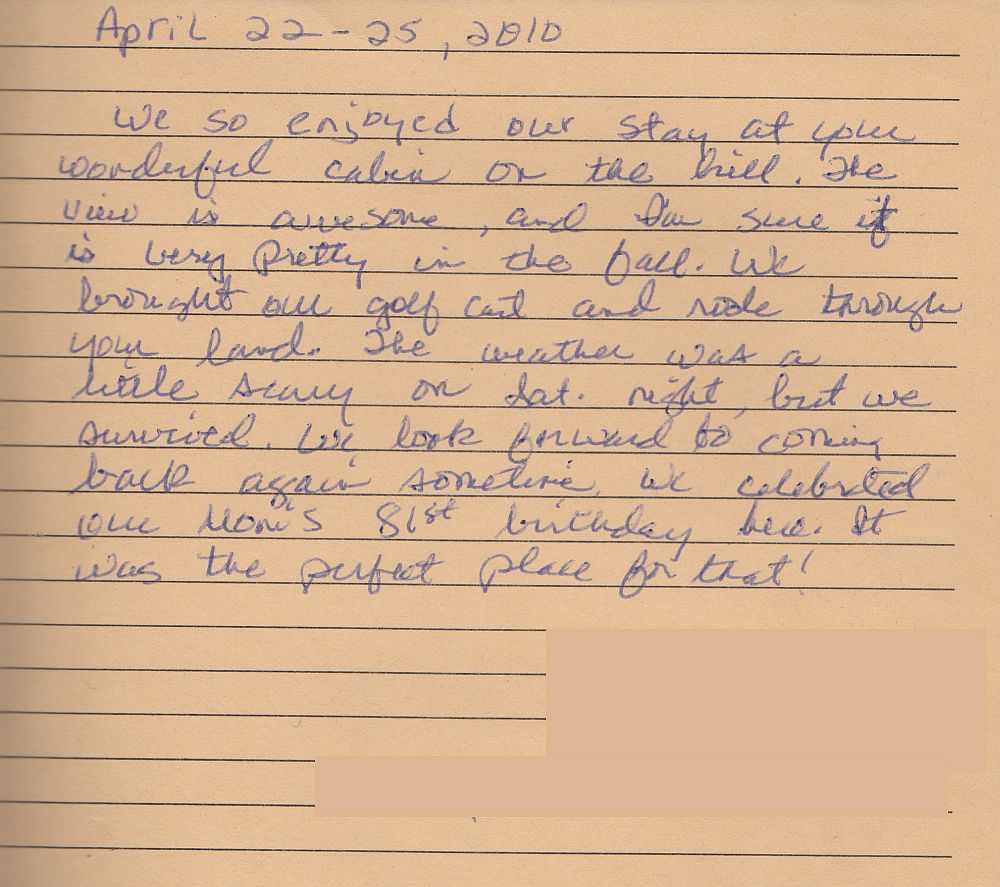 April 22-25, 2010
We so enjoyed our stay at your
wonderful cabin on the hill. The
view is awesome, and I'm sure it
is very pretty in the fall. We
brought our golf cart and rode through
your land. The weather was a
little scary on Sat. night, but we
survived. We look forward to coming
back again sometime. We celebrated
our Mom's 81st birthday here. It
was the perfect place for that!